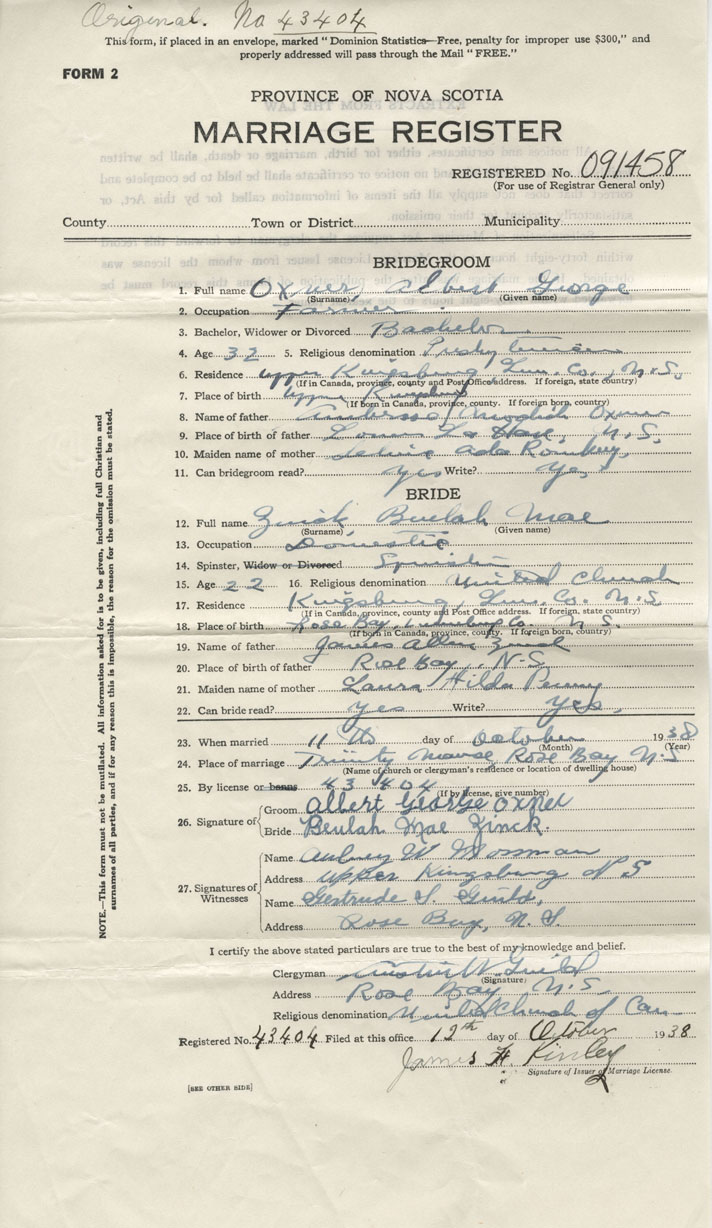 Original. No 43404
This form, if placed in an envelope, marked "Dominion Statistics—Free, penalty for improper use $300," and
properly addressed will pass through the Mail "FREE."
FORM 2
PROVINCE OF NOVA SCOTIA
MARRIAGE REGISTER
REGISTERED No. 091458
(For use of Registrar General only)
County Town or District Municipality
BRIDEGROOM
1. Full name Oxner Albert George
(Surname) (Given name)
2. Occupation Farmer
3. Bachelor, Widower or Divorced Bachelor
4. Age 32 5. Religious denomination Presbyterian
6. Residence Upper Kingsburg Lun. Co., N.S.
(If in Canada, province, county and Post Office address. If foreign, state country)
7. Place of birth Upper Kingsburg
(If born in Canada, province, county. If foreign born, country)
8. Name of father Oxner
9. Place of father La Have, N.S.
10. Maiden name of mother Ada Romkey
11. Can bridegroom read? Yes Write? Yes
BRIDE
12. Full name Zinck Beulah Mae
(Surname) (Given name)
13. Occupation Domestic
14. Spinster, Widow or Divorced Spinster
15. Age 22 16. Religious denomination United Church
17. Residence Kingsburg, Lun. Co. N.S.
(If in Canada, province, county and Post Office address. If foreign, state country)
18. Place of birth Rose Bay, Lunenburg Co. N.S.
(If born in Canada, province, county. If foreign born, country)
19. Name of father James Allen Zinck
20. Place of birth of father Rose Bay, N.S.
21. Maiden name of mother Laura Hilda Penny
22. Can bride read? Yes Write? Yes,
23. When married 11th day of October 1938
(Month) (Year)
24. Place of marriage Trinity Manse Rose Bay N.S
(Name of church or clergyman's residence or location of dwelling house)
25. By license or banns 43404
(If by license, give number)
26. Signature of
Groom Albert George Oxner
Bride Beulah Mae Zinck.
27. Signatures of Witnesses
Name Aubrey W Mossman
Address Upper Kingsburg N S
Name Gertrude S. Guild,
Address Rose Bay, N.S.
I certify the above stated particulars are true to the best of my knowledge and belief.
Clergyman W Guild
(Signature)
Address Rose Bay N.S.
Religious denomination United Church of Can
Registered No. 43404 Filed at this office 12th day of October 1938
James H Kinley
Signature of Issuer of Marriage License.
[SEE OTHER SIDE]
NOTE.—This form must not be mutilated. All information asked for is to be given, including full Christian and
surnames of all parties, and if for any reason this is impossible, the reason for the omission must be stated.